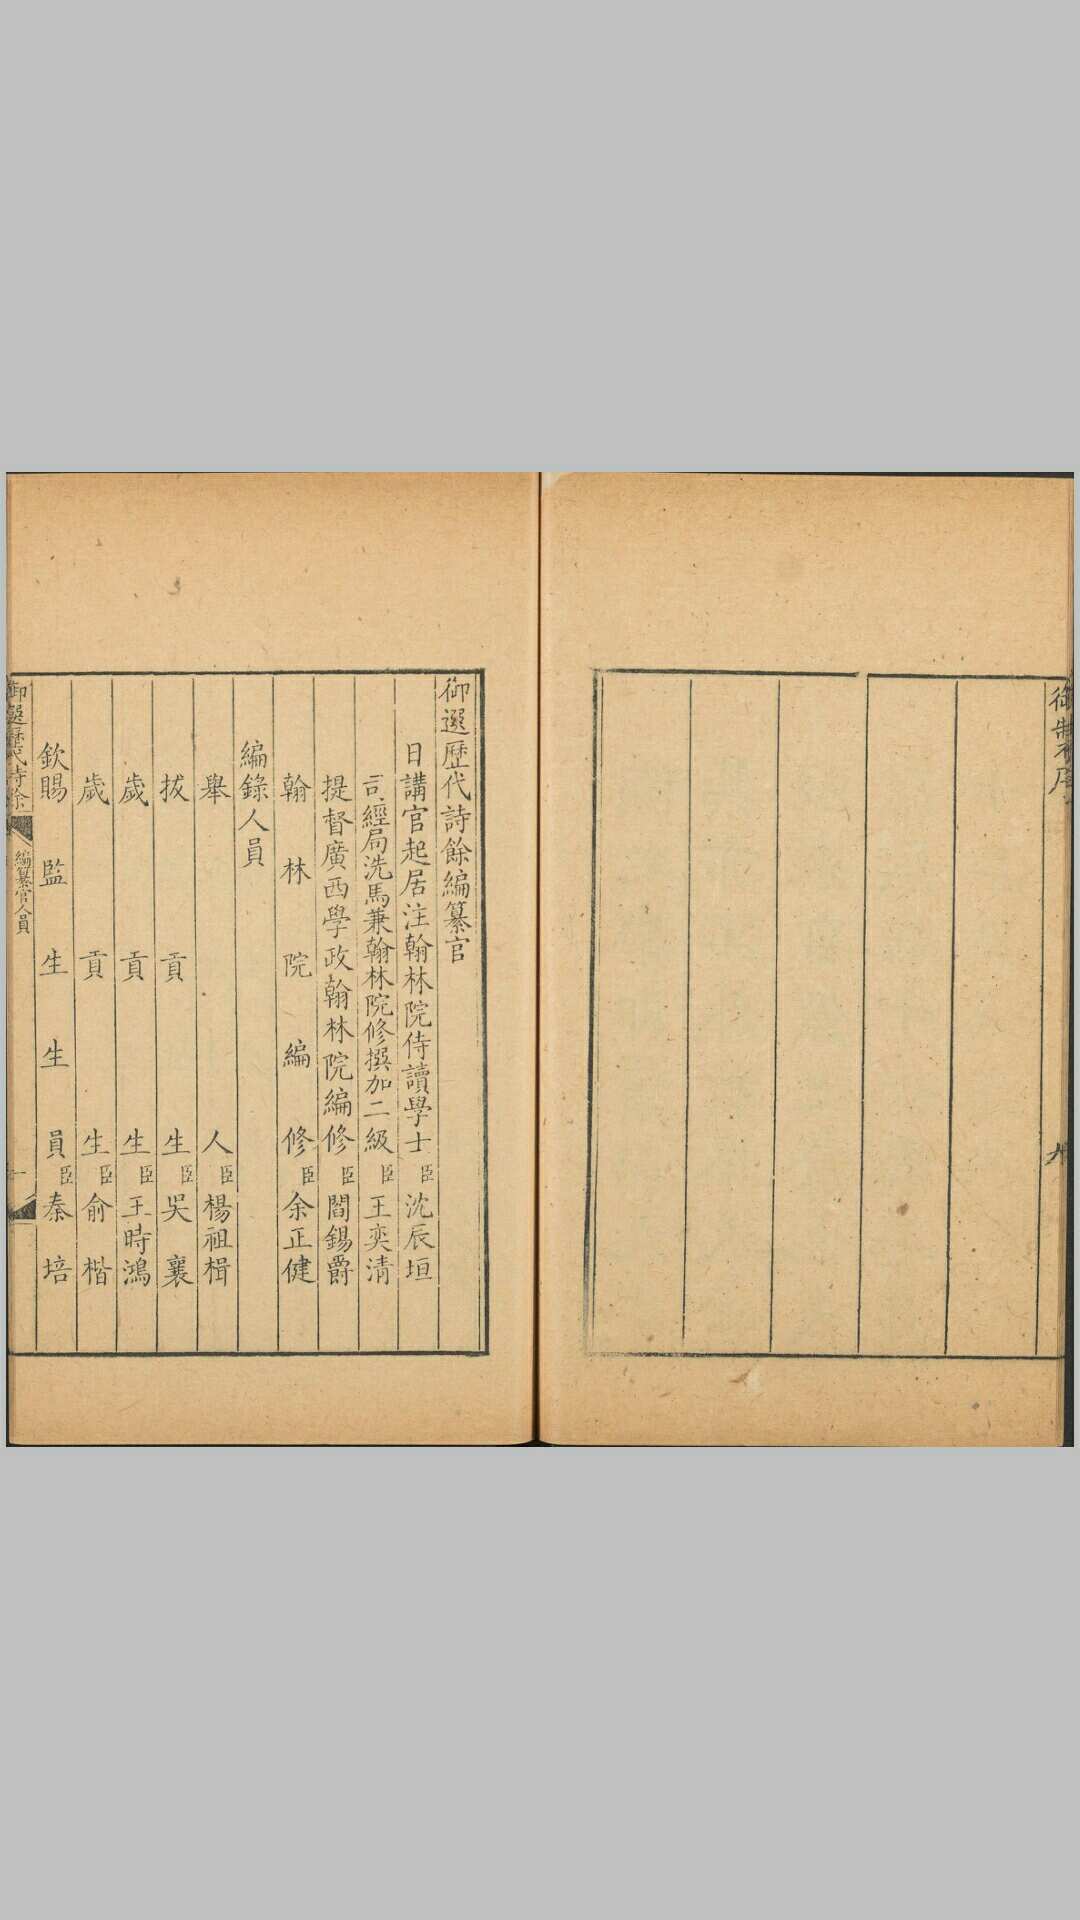 御製序
九
御選歷代詩餘編纂官
日講官起居注翰林院侍讀學士臣沈辰垣
司經局洗馬兼翰林院修撰加二級臣王奕清
提督廣西學政翰林院編修臣閻錫爵
翰林院編修臣余正健
編錄人員
舉人臣楊祖楫
拔貢生臣吳襄
歲貢生臣王時鴻
歲貢生臣俞楷
欽賜監生生員臣秦培
御選歷代詩餘
編纂官人員
一